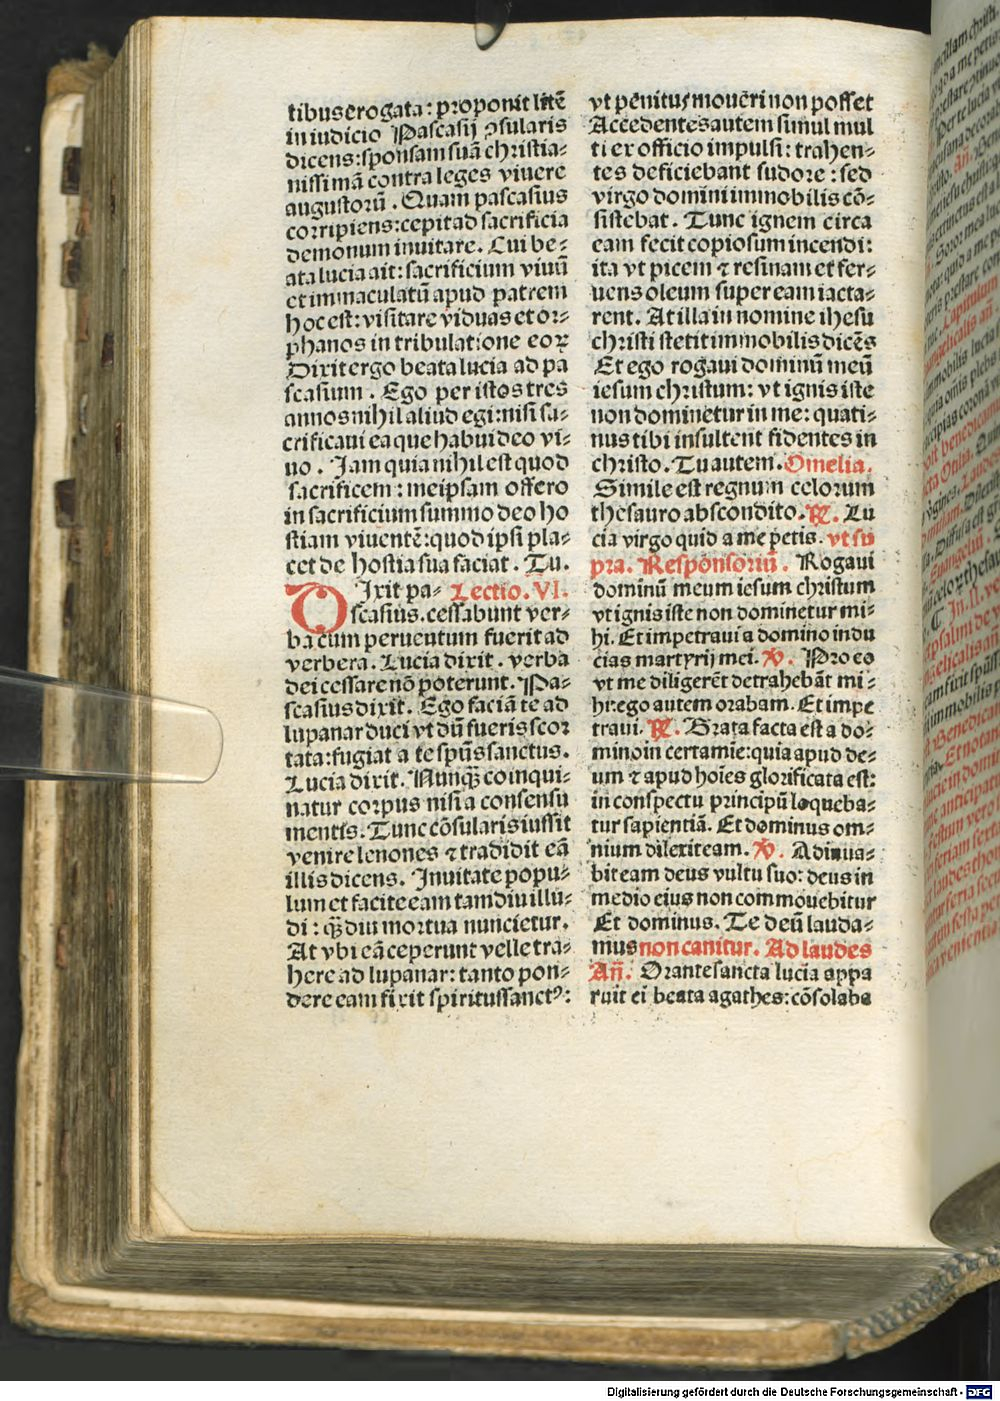 tibus erogata : proponit litē
in iudicio Pascasij ꝯsularis
dicens: sponsam suā christia⸗
nissimā contra leges viuere
augustorū . Quam pascasius
corripiens: cepit ad sacrificia
demonum inuitare. Cui be⸗
ata lucia ait: sacrificium viuū
et immaculatū apud patrem
hoc est: visitare viduas et or⸗
phanos in tribulatione eoꝝ
Dixit ergo beata lucia ad pa
scasium . Ego per istos tres
annos nihil aliud egi: nisi sa⸗
crificaui ea que habui deo vi⸗
uo . Jam quia nihil est quod
sacrificem : meipsam offero
in sacrificium summo deo ho
stiam viuentē: quod ipsi pla⸗
cet de hostia sua faciat . Tu.
Dixit pa⸗ Lectio. VI.
scasius. cessabunt ver⸗
ba cum peruentum fuerit ad
verbera . Lucia dixit . verba
dei cessare nō poterunt. Pa⸗
scasius dixit. Ego faciā te ad
lupanar duci vt dū fueris scor
tata: fugiat a te spūs sanctus.
Lucia dixit. Nunꝙ̄ coinqui⸗
natur corpus nisi a consensu
mentis. Tunc cōsularis iussit
venire lenones ⁊ tradidit eā
illis dicens. Inuitate popu⸗
lum et facite eam tamdiu illu⸗
di : ꝙ̄diu mortua nuncietur.
At vbi eā ceperunt velle tra⸗
here ad lupanar: tanto pon⸗
dere eam fixit spiritussanctꝰ:
vt penitus moueri non posset
Accedentes autem simul mul
ti ex officio impulsi: trahen⸗
tes deficiebant sudore : sed
virgo domini immobilis cō⸗
sistebat . Tunc ignem circa
eam fecit copiosum incendi:
ita vt picem ⁊ resinam et fer⸗
uens oleum super eam iacta⸗
rent. At illa in nomine ihesu
christi stetit immobilis dicēs
Et ego rogaui dominū meū
iesum christum: vt ignis iste
non dominetur in me: quati⸗
nus tibi insultent fidentes in
christo. Tu autem. Omelia.
Simile est regnum celorum
thesauro abscondito. ℟. Lu
cia virgo quid a me petis. vt su
pra. Responsoriū. Rogaui
dominū meum iesum christum
vt ignis iste non dominetur mi⸗
hi. Et impetraui a domino indu
cias martyrij mei. ℣. Pro eo
vt me diligerēt detrahebāt mi⸗
hi: ego autem orabam. Et impe
traui. ℟. Grata facta est a do⸗
mino in certamīe: quia apud de⸗
um ⁊ apud hoīes glorificata est:
in conspectu principū loqueba⸗
tur sapientiā. Et dominus om⸗
nium dilexit eam. ℣. Adiuua⸗
bit eam deus vultu suo: deus in
medio eius non commouebitur
Et dominus. Te deū lauda⸗
mus non canitur. Ad laudes
Añ. Orante sancta lucia appa
ruit ei beata agathes: cōsolaba
Digitalisierung gefördert durch die Deutsche Forschungsgemeinschaft - DFG